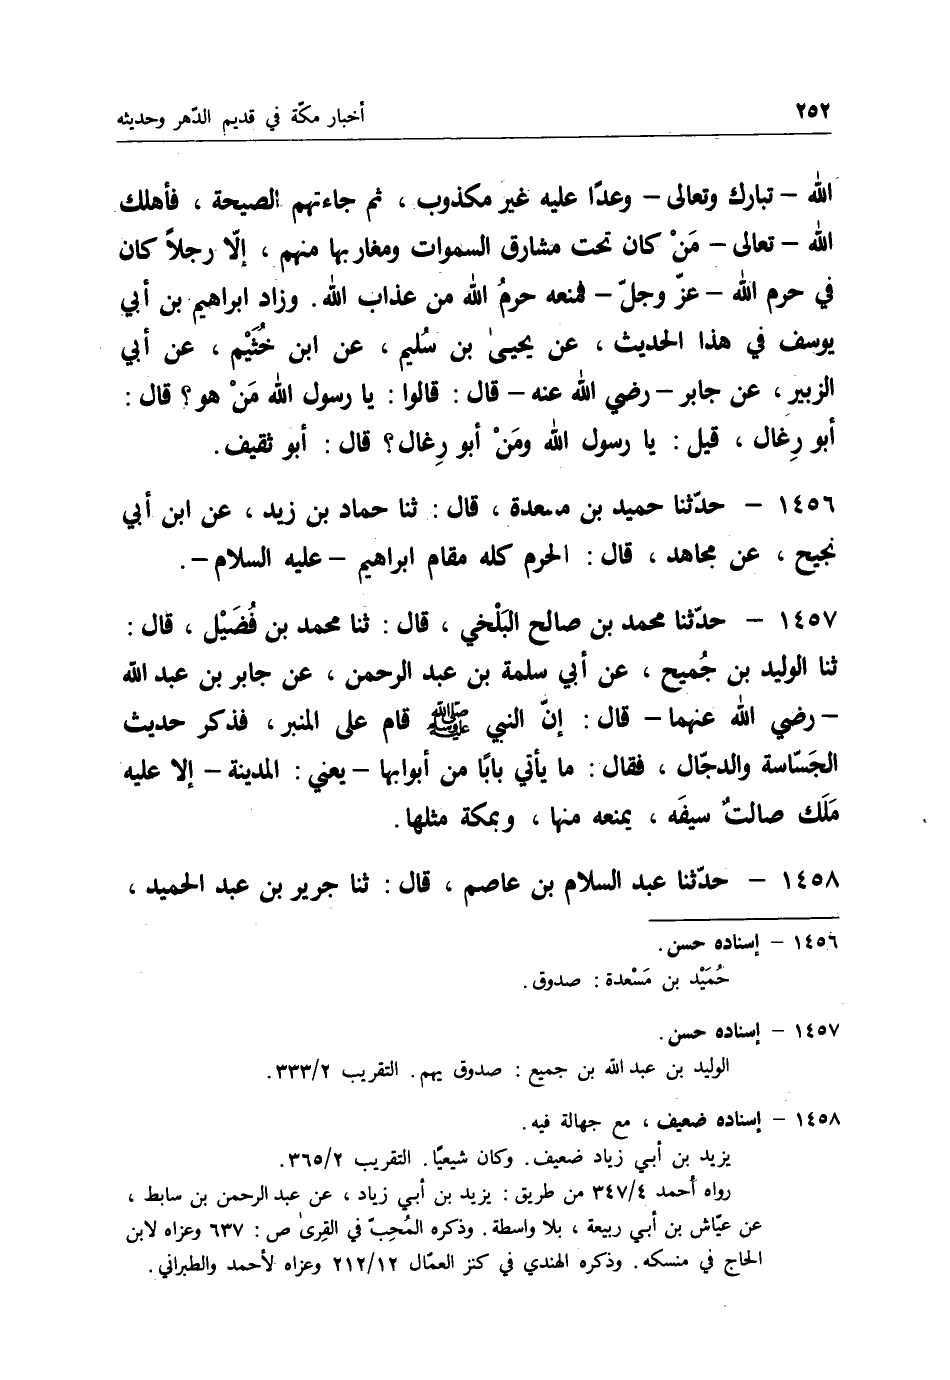 ٢٥٢
أخبار مكّة في قديم الدّهر وحديثه
الله – تبارك وتعالى – وعدًا عليه غير مكذوب ، ثم جاءتهم الصيحة ، فأهلك
الله – تعالى – مَنْ كان تحت مشارق السموات ومغاربها منهم ، إلّا رجلاً كان
في حرم الله – عزّ وجلّ – فمنعه حرمُ الله من عذاب الله. وزاد ابراهيم بن أبي
يوسف في هذا الحديث ، عن يحيىٰ بن سُليم ، عن ابن خُثَيْم ، عن أبي
الزبير ، عن جابر – رضي الله عنه – قال : قالوا : يا رسول الله مَنْ هو؟ قال :
أبو رِغال ، قيل : يا رسول الله ومَنْ أبو رِغال؟ قال : أبو ثقيف.
١٤٥٦ – حدّثنا حميد بن مسعدة ، قال : ثنا حماد بن زيد ، عن ابن أبي
نجيح ، عن مجاهد ، قال : الحرم كله مقام ابراهيم – عليه السلام –.
١٤٥٧ – حدّثنا محمد بن صالح البَلْخي ، قال : ثنا محمد بن فُضَيْل ، قال :
ثنا الوليد بن جُميح ، عن أبي سلمة بن عبد الرحمن ، عن جابر بن عبد الله
– رضي الله عنهما – قال : إنّ النبي ﷺ قام على المنبر ، فذكر حديث
الجَسّاسة والدجّال ، فقال : ما يأتي بابًا من أبوابها – يعني : المدينة – إلا عليه
مَلَك صالتٌ سيفَه ، يمنعه منها ، وبمكة مثلها.
١٤٥٨ – حدّثنا عبد السلام بن عاصم ، قال : ثنا جرير بن عبد الحميد ،
١٤٥٦ – إسناده حسن.
حُمَيْد بن مَسْعدة : صدوق.
١٤٥٧ – إسناده حسن.
الوليد بن عبد الله بن جميع : صدوق يهم. التقريب ٣٣٣/٢.
١٤٥٨ – إسناده ضعيف ، مع جهالة فيه.
يزيد بن أبي زياد ضعيف. وكان شيعيًا. التقريب ٣٦٥/٢.
رواه أحمد ٣٤٧/٤ من طريق : يزيد بن أبي زياد ، عن عبد الرحمن بن سابط ،
عن عيّاش بن أبي ربيعة ، بلا واسطة. وذكره المُحِبّ في القِرىٰ ص : ٦٣٧ وعزاه لابن
الحاج في منسكه. وذكره الهندي في كنز العمّال ٢١٢/١٢ وعزاه لأحمد والطبراني.